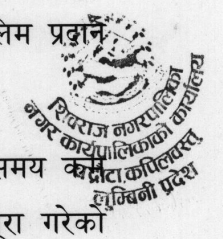 लिम प्रदान
शिवराज नगरपालिका
नगर कार्यपालिकाको कार्यालय
कपिलवस्तु
लुम्बिनी प्रदेश
समय
रा गरेको